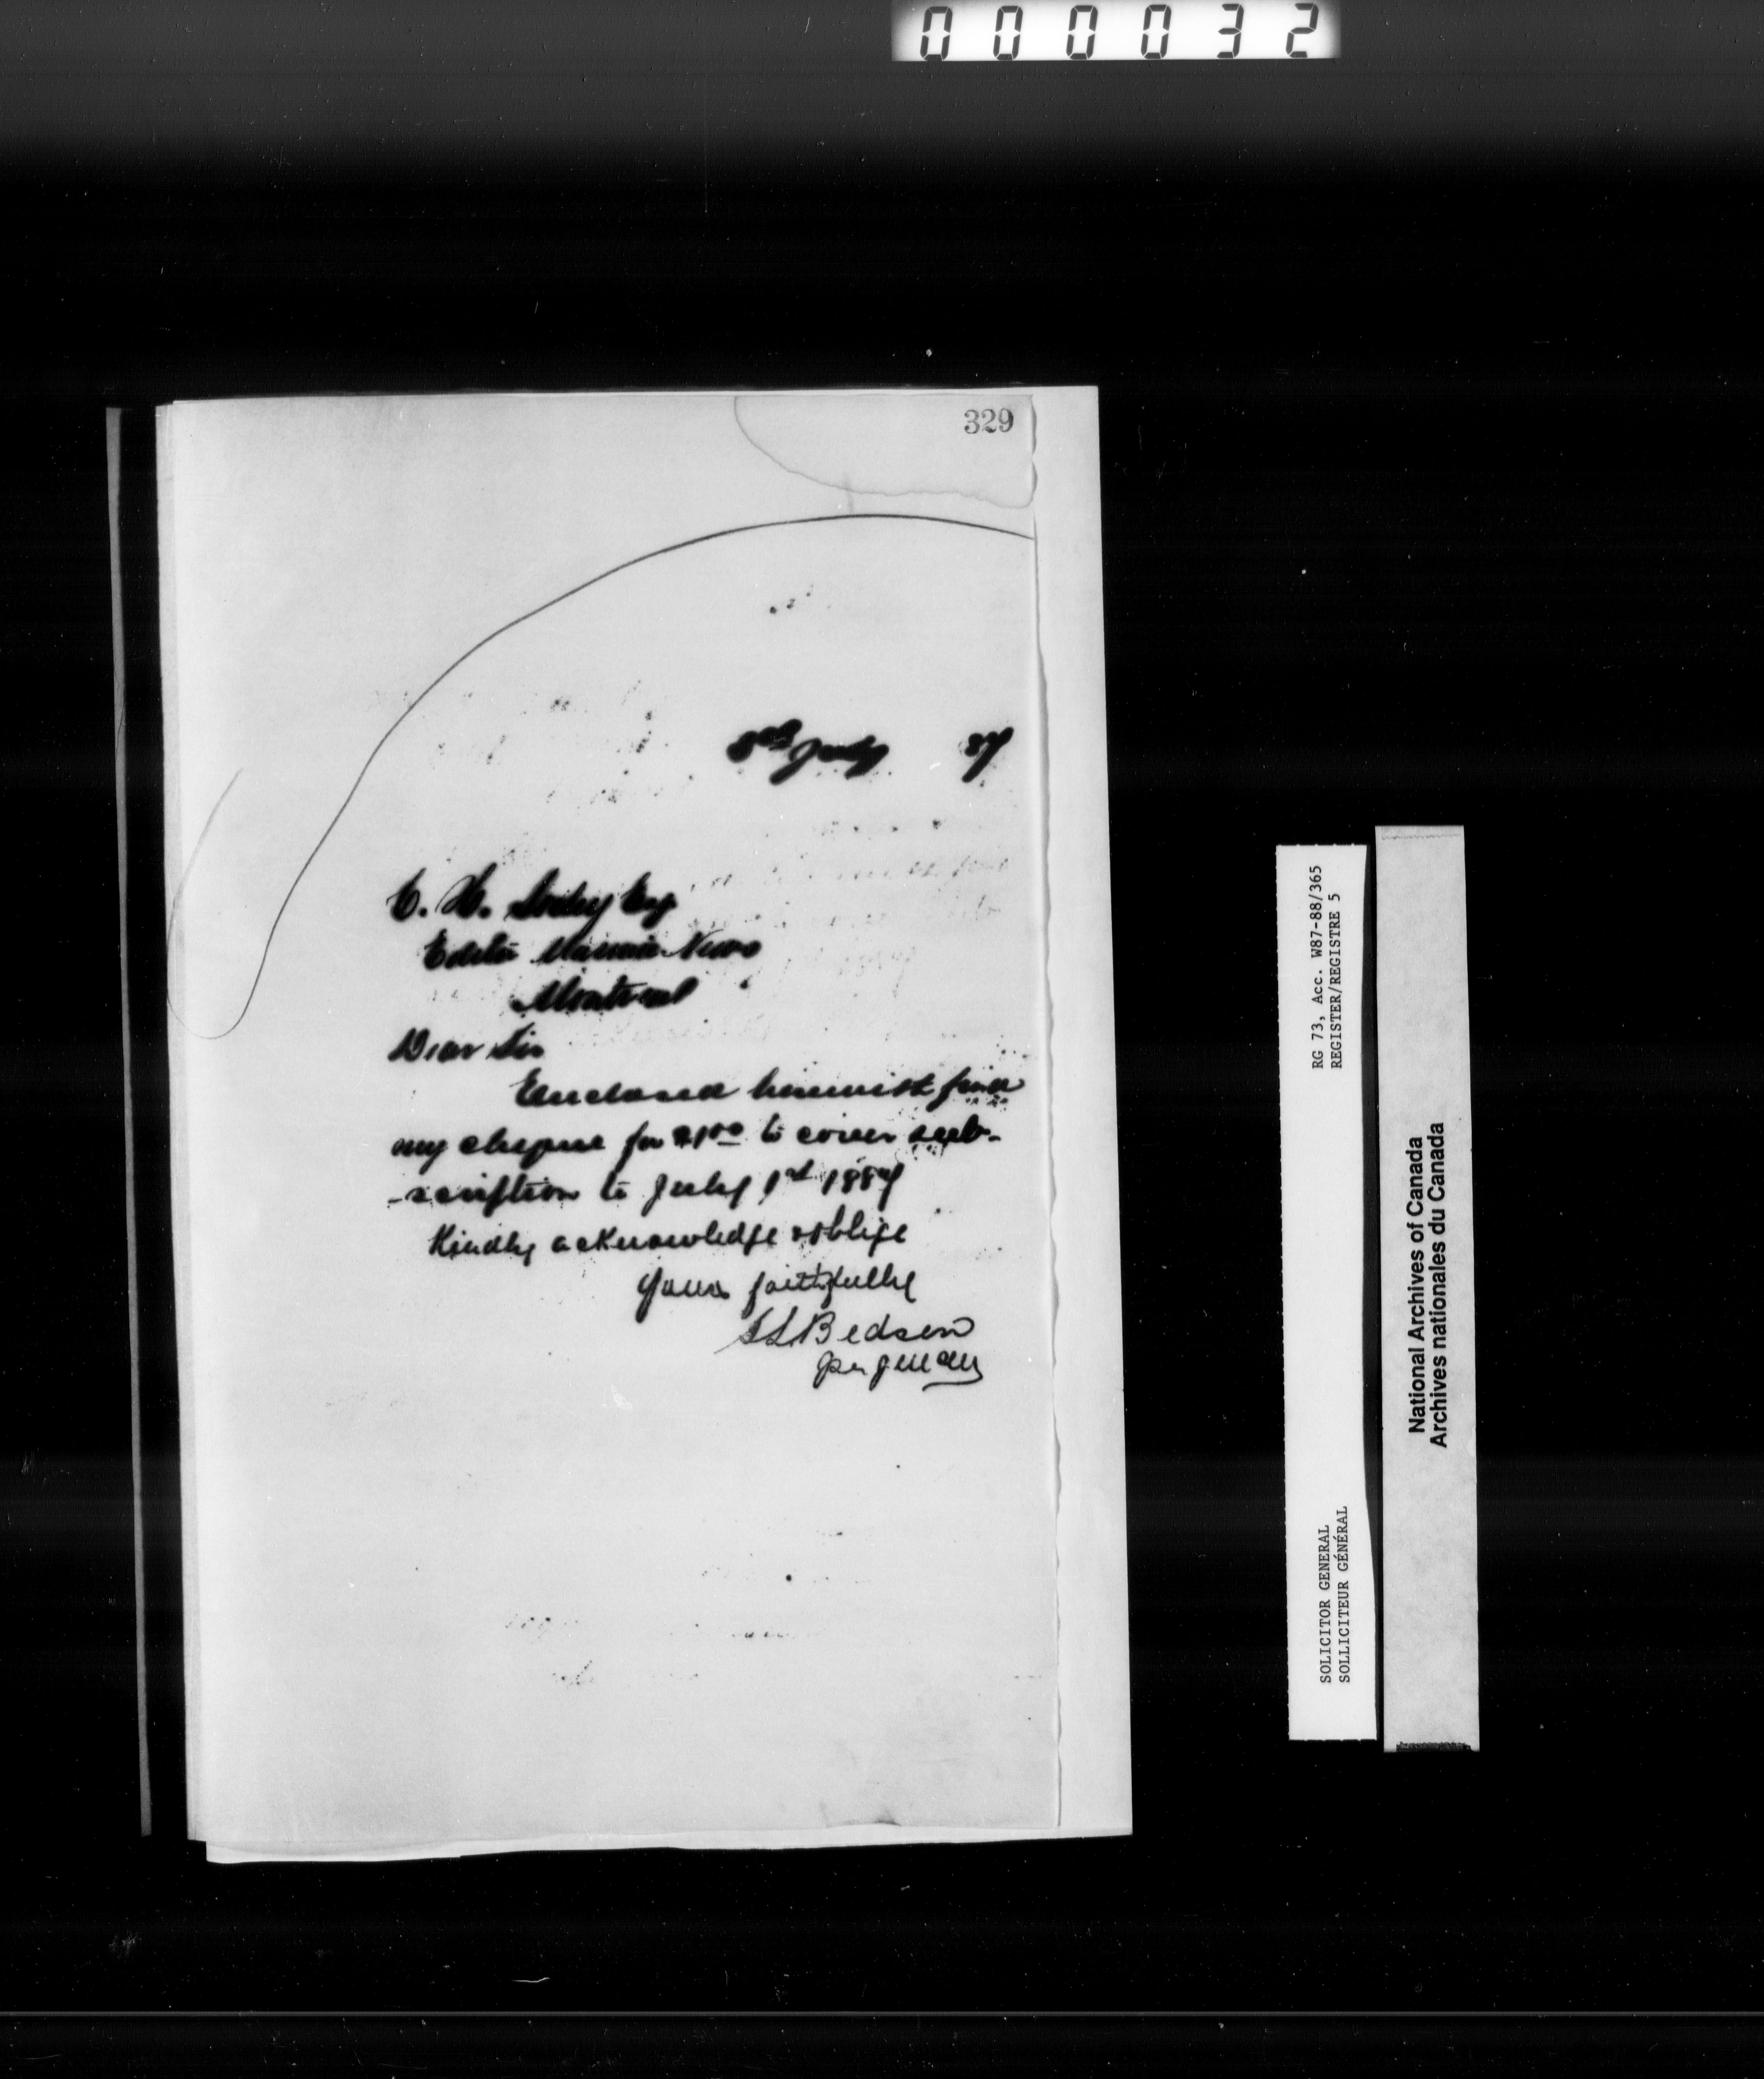 000032
329
8th July 87
C. H.
Editor Masonic News
Montreal
Dear Sir
Enclosed herewith find
my cheque for $1.00 to cover sub-
-scription to July 1st 1887
Kindly acknowledge & oblige
Yours faithfully
SLBedson
per
RG 73, Acc. W87-88/365
REGISTER/REGISTRE 5
SOLICITOR GENERAL
SOLLICITEUR GÉNÉRAL
National Archives of Canada
Archives nationales du Canada